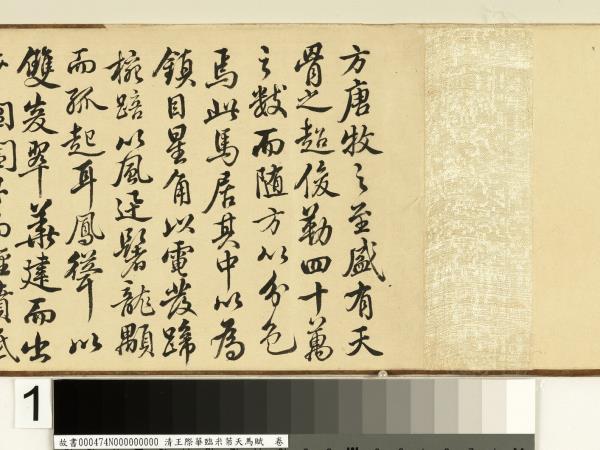 方唐牧之至盛有天
骨之超俊勒四十萬
之數而随方以分色
焉此馬居其中以為
鎮目星角以電發蹄
椀踣以風迅鬐龍顒
而孤起耳鳳聳以
雙翠華建而出
1
故書000474N000000000 清王際華臨米芾天馬賦 卷